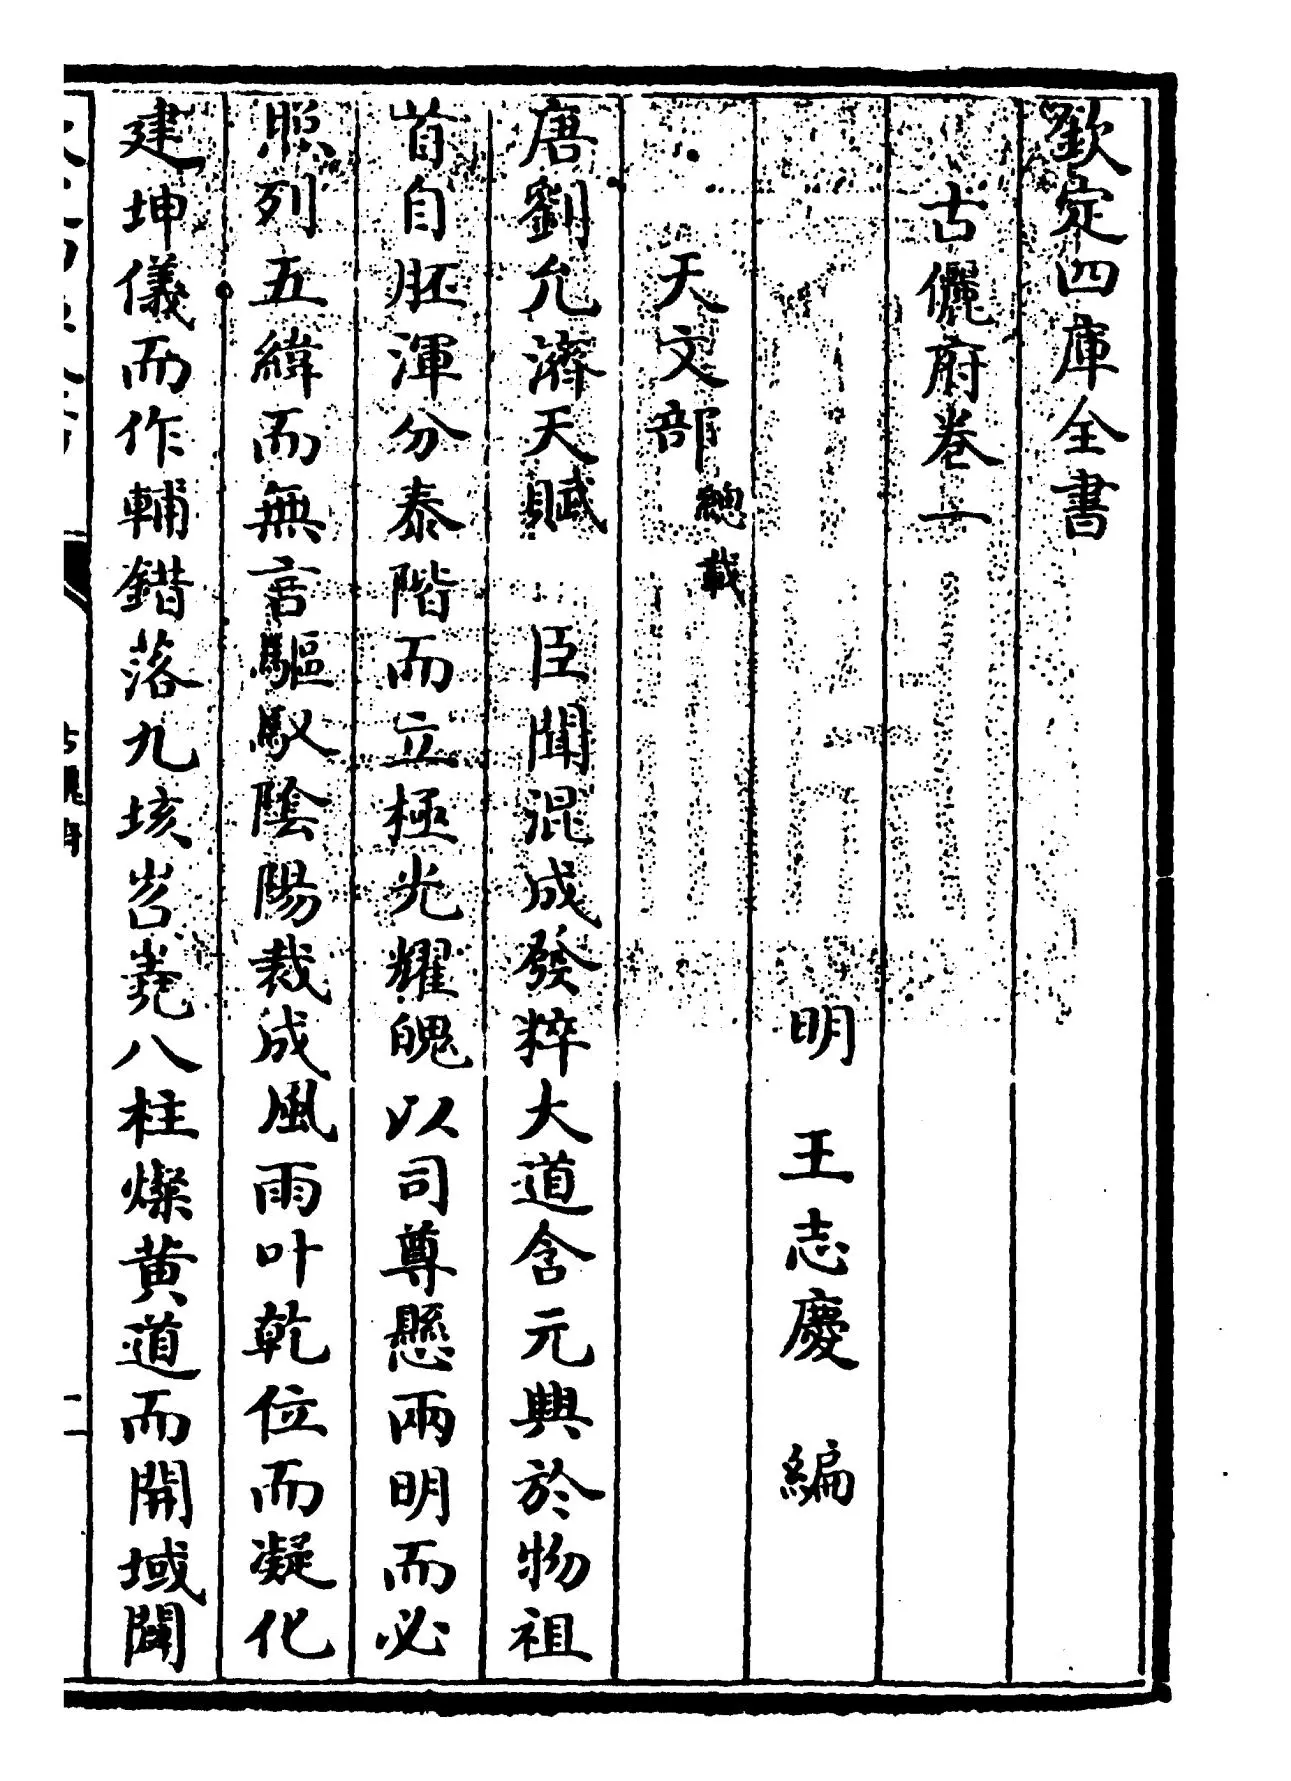 欽定四庫全書
古儷府卷一
明 王志慶 編
天文部 總載
唐劉允濟天賦 臣聞混成發粹大道含元興於物祖
首自胚渾分泰階而立極光耀魄以司尊懸兩明而必
照列五緯而無言驅馭陰陽裁成風雨叶乾位而凝化
建坤儀而作輔錯落九垓岧嶤八柱燦黃道而開域闢